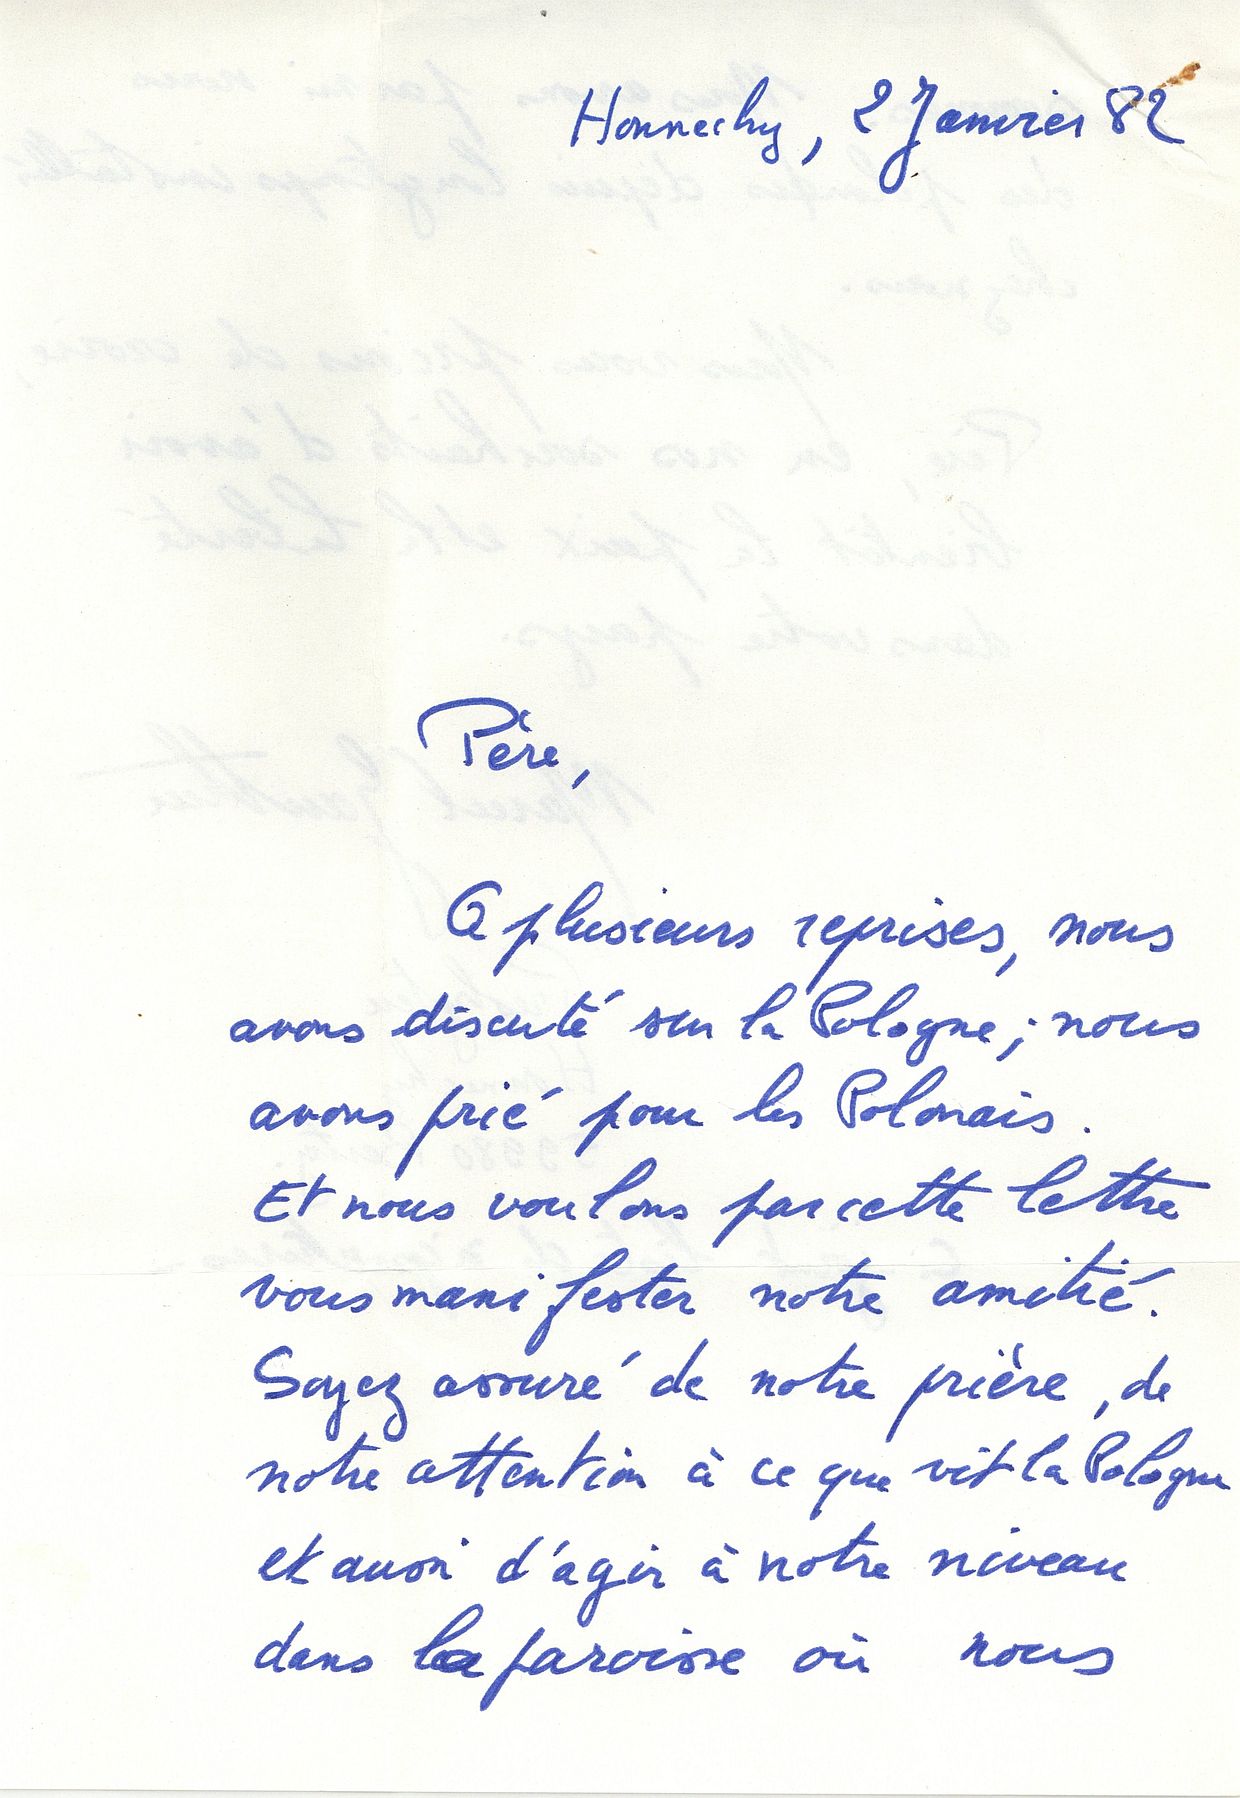 Honnechy, 2 Janvier 82
Père,
A plusieurs reprises, nous
avons discuté sur la Pologne ; nous
avons prié pour les Polonais.
Et nous voulons par cette lettre
vous manifester notre amitié.
Soyez assuré de notre prière, de
notre attention à ce que vit la Pologne
et aussi d'agir à notre niveau
dans la paroisse où nous